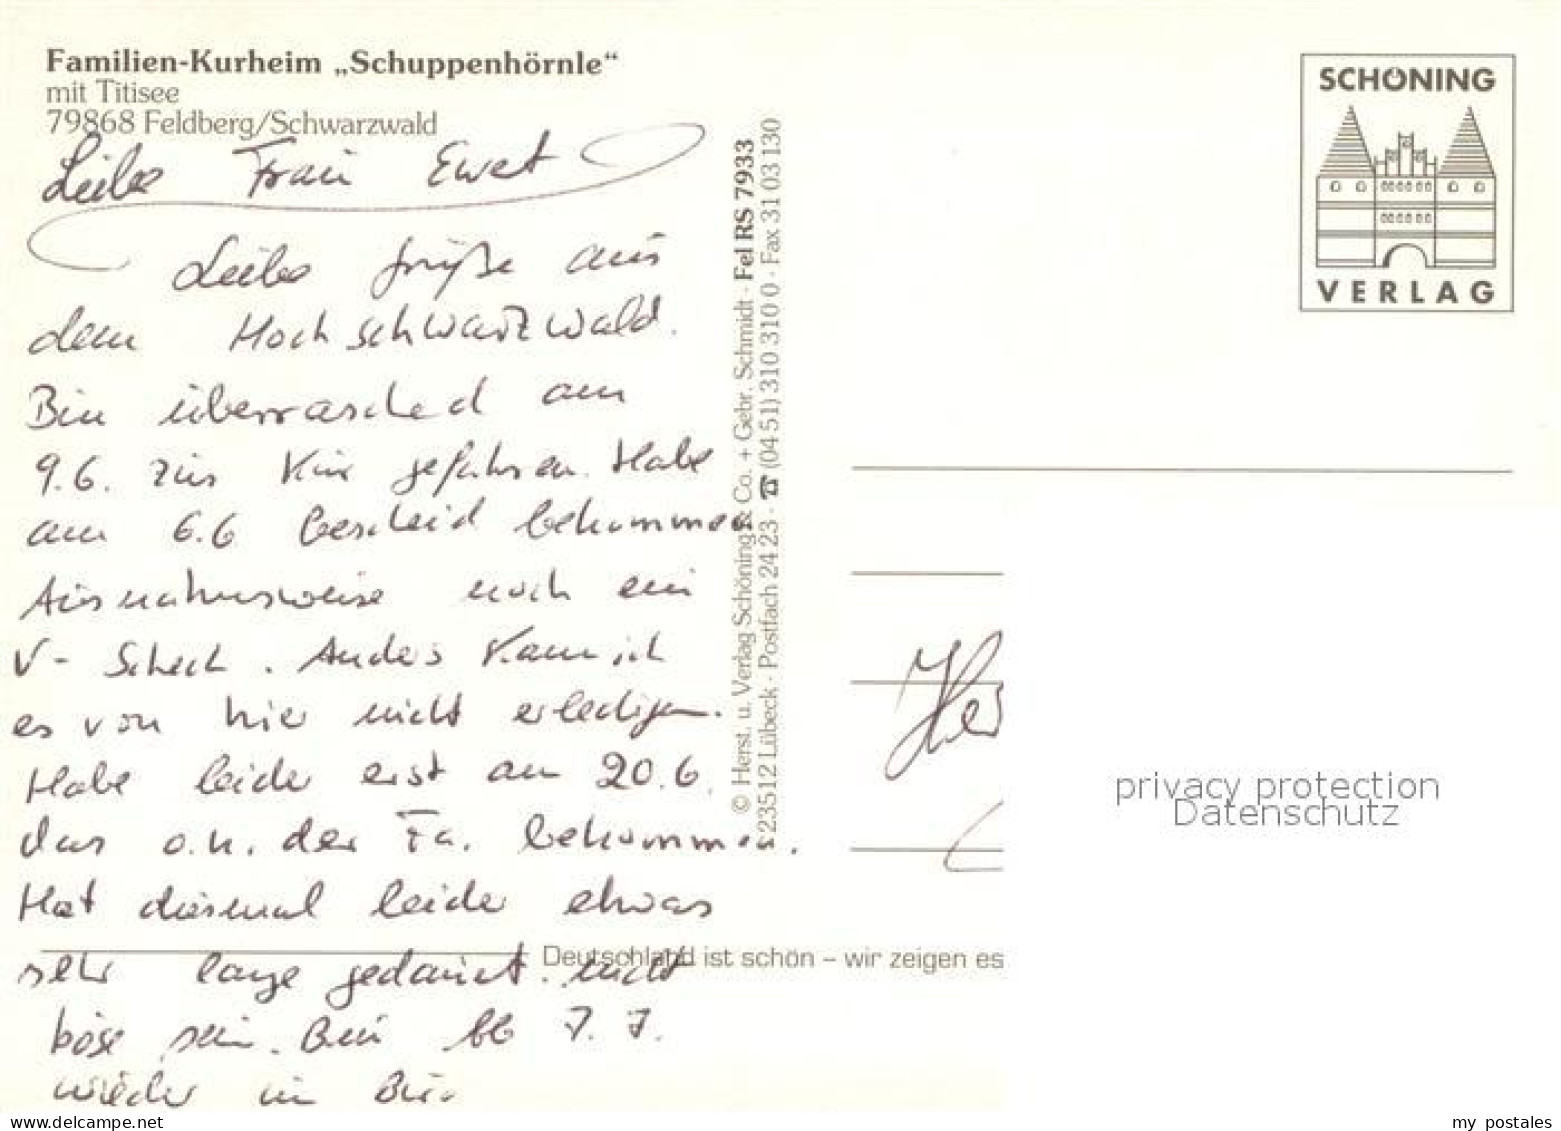 Familien-Kurheim „Schuppenhörnle“
mit Titisee
79868 Feldberg/Schwarzwald
Liebe Frau Ewet
Liebe Grüße aus
dem Hochschwarzwald.
Bin überrasched am
9.6. zur Kur gefahren. Habe
am 6.6 bescheid bekommen
Ausnahmsweise noch ein
V-Scheck. Anders kann ich
es von hier nicht erledigen.
Habe leider erst am 20.6.
das o.k. der Fa. bekommen.
Hat diesmal leider etwas
sehr lange gedauert. nicht
böse sein. Bin ab 7.7.
wieder im Büro
© Herst. u. Verlag Schöning & Co. + Gebr. Schmidt · Fel RS 7933
23512 Lübeck · Postfach 24 23 · ☎ (04 51) 310 310 0 · Fax 31 03 130
SCHÖNING
VERLAG
Deutschland ist schön – wir zeigen es
privacy protection
Datenschutz
my postales